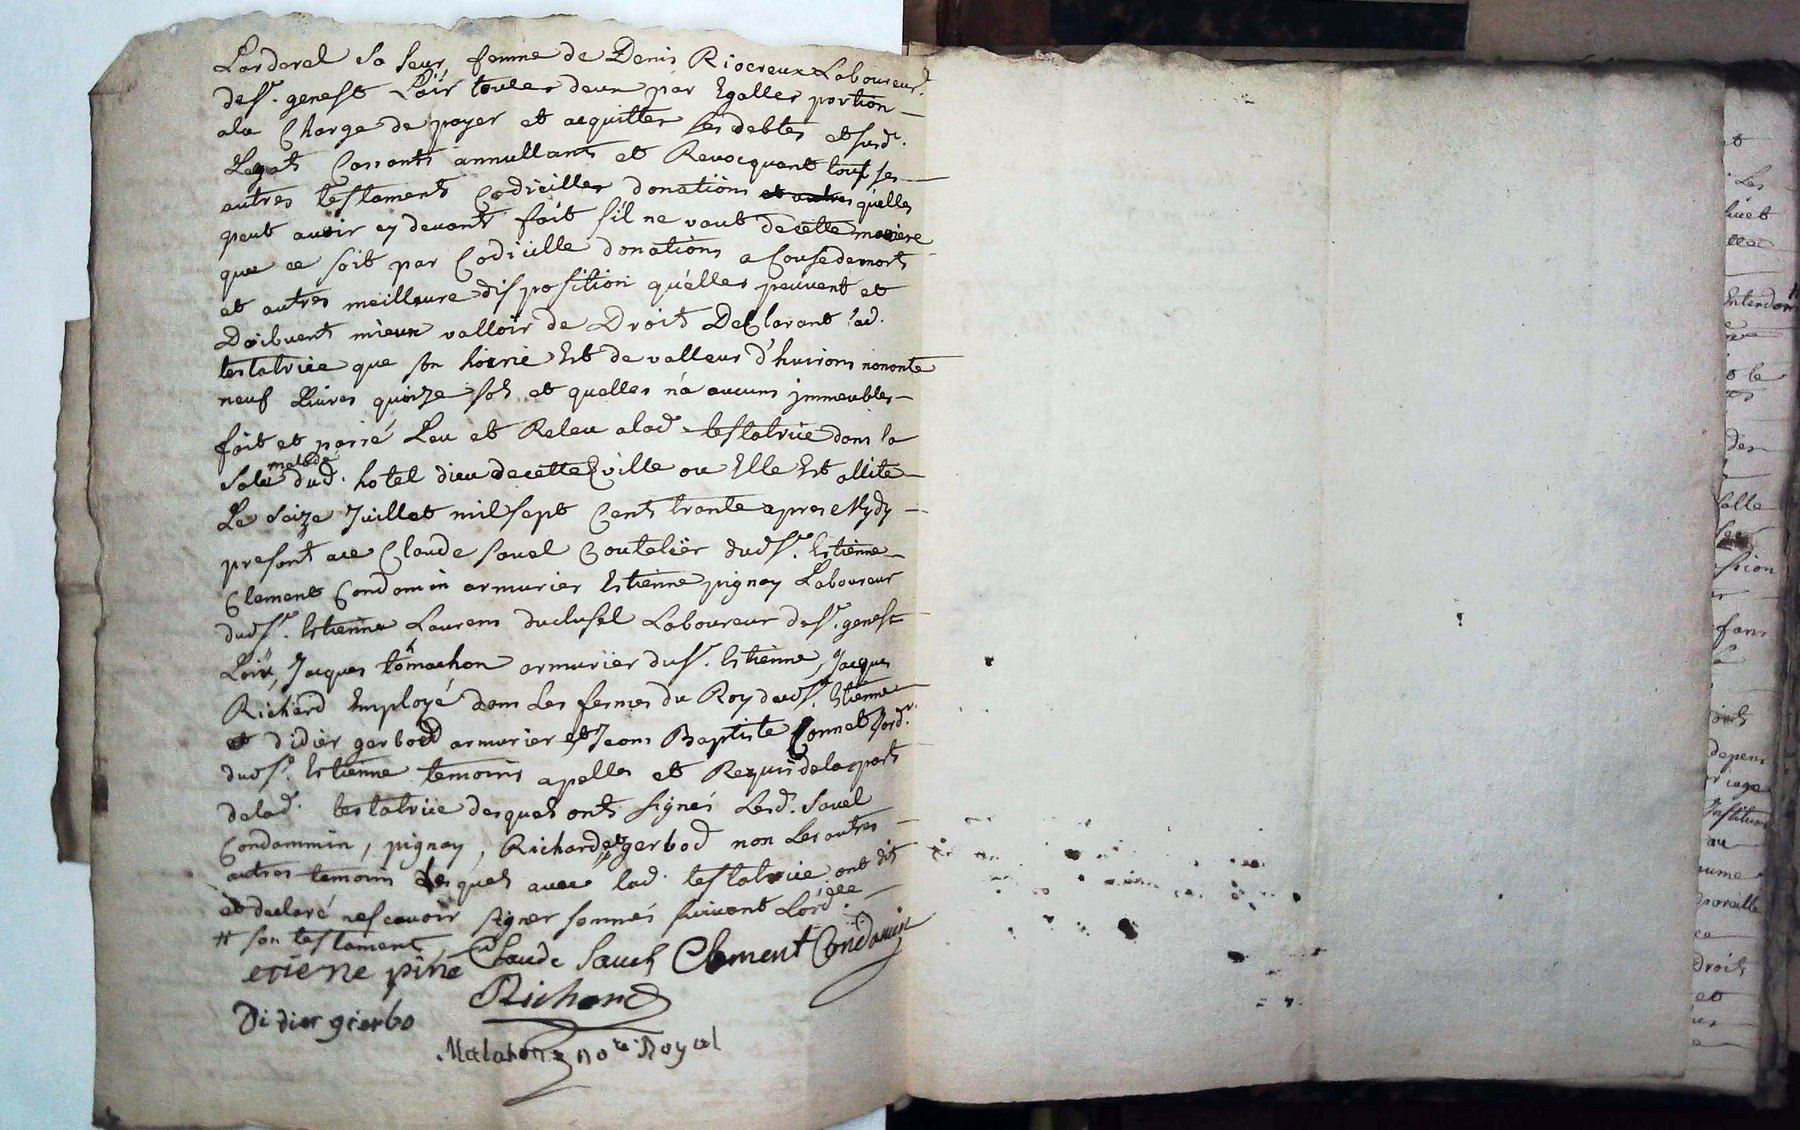 Larderel sa seur femme de Denis Riocreux Laboureur
de St. genest L'air toutes deux par Egalles portion
ala Charge de payer et acquitter ses debtes et susd.
Legats Cassants annullants et Revocquant tous ses
autres testaments Codicilles donations et autres quelles
peut avoir cy devant fait s'il ne vaut decette maniere
que ce soit par Codicille donations a Cause de mort
et autres meilleure disposition quélles peuvent et
Doibvent mieux valloir de Droit Declarant lad.
testatrice que son hoirie Est de valleur d'huirons nonante
neuf Livres quinze sols et quelles n'a aucuns jmmeubles
fait et passé Leu et Releu a lad. testatrice dans la
malade
Sale dud. hotel dieu decette ville ou Elle Est allité
Le Seize Juillet mil sept Cent trante apres Mydy
presant ace Claude Sauel Coutelier dud St. Estienne
Clement Condomin armurier Estienne pignay Laboureur
dud St. Estienne Laurens duclusel Laboureur de St. genest
Loir, Jacques tômachon armurier du St. Estienne, Jacques
Richard Employé dans Les fermes du Roy dud St. Estienne
et didier gerbod armurier et Jean Baptiste Connet Cord.
dud St. Estienne temoins apelles et Requis dela part
delad. testatrice desquels onts signés Lesd. Sauel
Condammin, pignay, Richard et gerbod non Les autres
autres temoins Lesquels avec lad. testatrice ont dit
et declaré ne scavoir signer sommés suivant Lord.ce
# son testament
etiene piné Claude Sauel Clement Condamin
Richard
Didier gierbo
No.re Royal